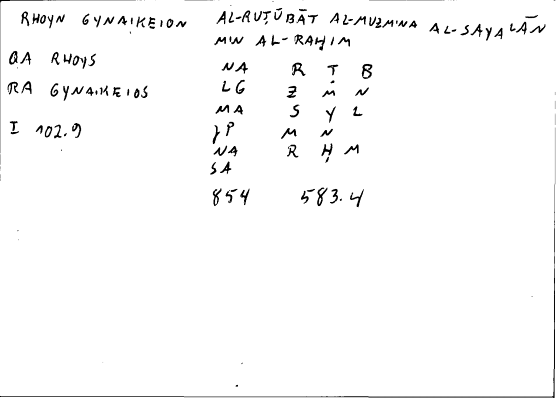 RHOYN GYNAIKEION
AL-RUṬŪBĀT AL-MUZMINA AL-SAYALĀN
MIN AL-RAḤIM
QA RHOYS
RA GYNAIKEIOS
I 102.9
NA R Ṭ B
LG Z M N
MA S Y L
JP M N
NA R Ḥ M
SA
854 583.4